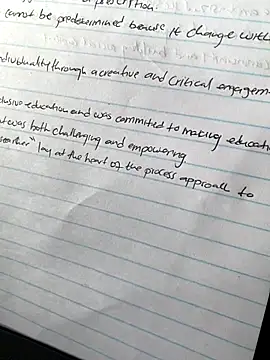 cannot be predetermined because it change with
individuality through a creative and critical engagem
clusive education and was committed to making educati
at was both challenging and empowering
lay at the heart of the process approach to